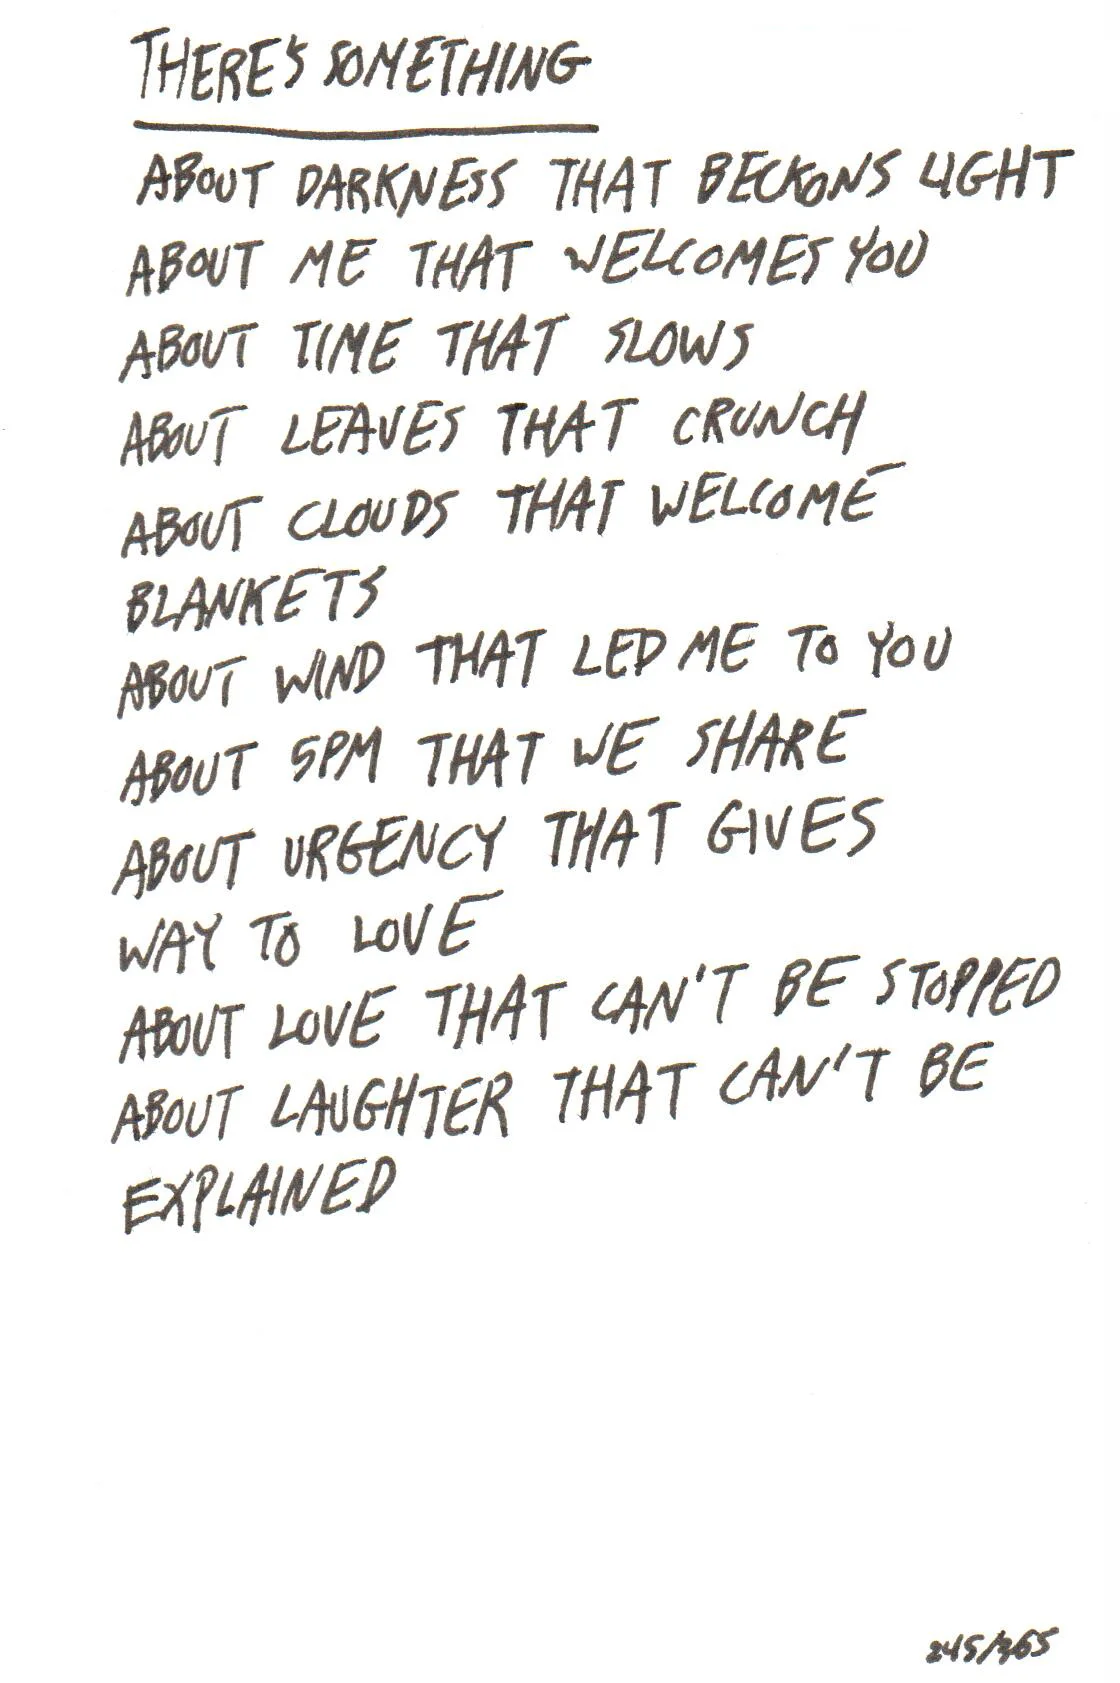 THERE'S SOMETHING
ABOUT DARKNESS THAT BECKONS LIGHT
ABOUT ME THAT WELCOMES YOU
ABOUT TIME THAT SLOWS
ABOUT LEAVES THAT CRUNCH
ABOUT CLOUDS THAT WELCOME
BLANKETS
ABOUT WIND THAT LED ME TO YOU
ABOUT 5PM THAT WE SHARE
ABOUT URGENCY THAT GIVES
WAY TO LOVE
ABOUT LOVE THAT CAN'T BE STOPPED
ABOUT LAUGHTER THAT CAN'T BE
EXPLAINED
245/365